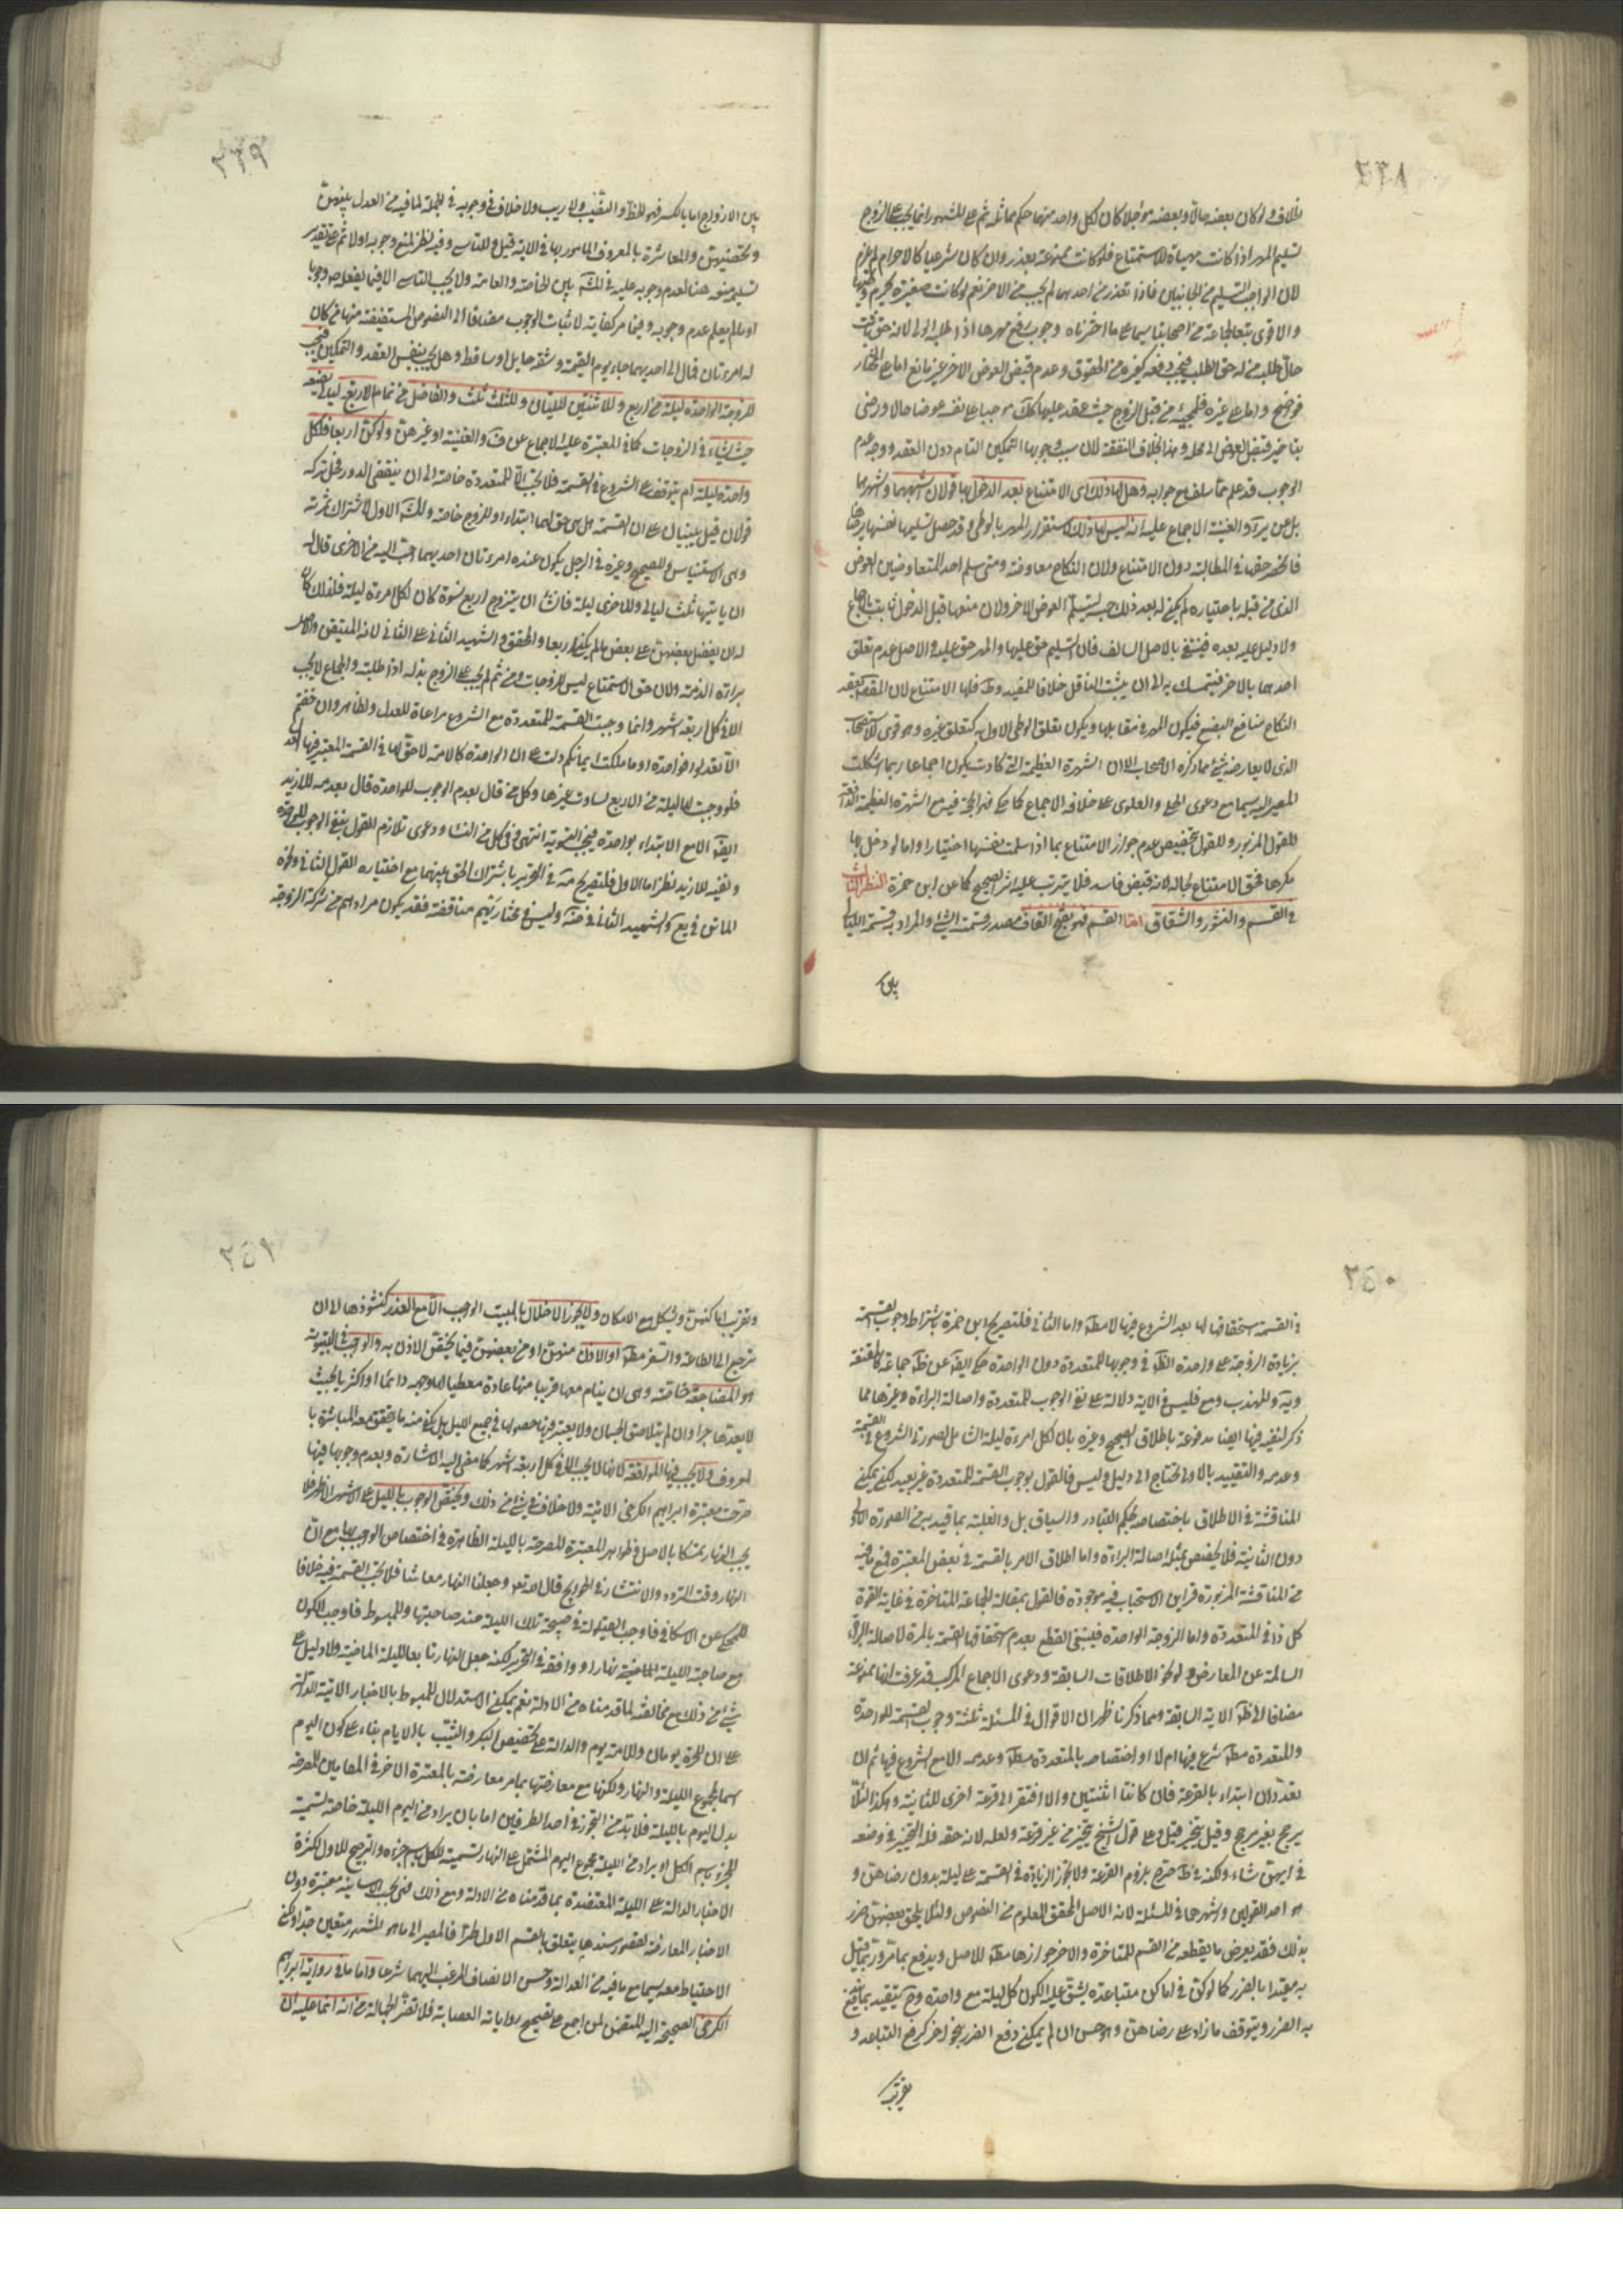 ٢٣٨
خلاف ولو كان بعضه حالا وبعضه مؤجلا كان لكل واحد منهما حكم مماثله ثم على المشهور انما يجب على الزوج
تسليم المهر اذا كانت مهياة للاستمتاع فلو كانت ممنوعة بعذر وان كان شرعيا كالاحرام لم يلزم
لان الواجب التسليم من الجانبين فاذا تعذر من احدهما لم يجب من الاخر نعم لو كانت صغيرة يحرم وطيها
والاقوى تبعا لجماعة من اصحابنا سيما على ما اخترناه وجوب دفع مهرها اذا طلبه الولي لانه حق ثابت
حال طلبه من له حق الطلب فيجب دفعه كغيره من الحقوق وعدم قبض العوض الاخر غير مانع اما على المختار
فواضح واما على غيره فلمجيئه من قبل الزوج حيث عقد عليها كك موجبا على نفسه عوضا حالا ورضي
بتاخير قبض العوض الى محله وهذا بخلاف النفقة لان سبب وجوبها التمكين التام دون العقد ووجه عدم
الوجوب قد علم مما سلف مع جوابه وهل لها ذلك اي الامتناع بعد الدخول بها قولان اشبههما واشهرهما
بل عن ئر والغنية الاجماع عليه انه ليس لها ذلك لاستقرار المهر بالوطي وقد حصل تسليمها نفسها برضاها
فانحصر حقها في المطالبة دون الامتناع ولان النكاح معاوضة ومتى سلم احد المتعاوضين العوض
الذي من قبله باختياره لم يكن له بعد ذلك حبسه ليتسلم العوض الاخر ولان منعها قبل الدخول ثابت بالاجماع
ولا دليل عليه بعده فينتفي بالاصل السالف فان التسليم حق عليها والمهر حق عليه والاصل عدم تعلق
احدهما بالاخر فيتمسك به الى ان يثبت الناقل خلافا للمفيد وط فلها الامتناع لان المقصود بعقد
النكاح منافع البضع فيكون المهر في مقابلها ويكون تعلق الوطي الاول به كتعلق غيره وهو قوي لولا الاستصحاب
الذي لا يعارضه شيء مما ذكره الاصحاب الا ان الشهرة العظيمة التي كادت يكون اجماعا ربما اشكلت
المصير اليه سيما مع دعوى الحلي والعلوي على خلافه الاجماع كما حكي فهو الحجة فيه مع الشهرة العظيمة الدافعة
للقول المزبور وللقول بتخصيص عدم جواز الامتناع بما اذا سلمت نفسها اختيارا واما لو دخل بها
مكرها فحق الامتناع بحاله لانه قبض فاسد فلا يترتب عليه اثر الصحيح كما عن ابن حمزة النظر الثالث
في القسم والنشوز والشقاق اما القسم فهو بفتح القاف مصدر قسمت الشيء والمراد به قسمة الليالي
بين
٢٣٩
بين الازواج اما بالكسر فهو الحظ والنصيب ولا ريب ولا خلاف في وجوبه في الجملة لما فيه من العدل بينهن
وتحصنهن والمعاشرة بالمعروف المامور بها في الاية قيل وللتاسي وفيه نظر لمنع وجوبه اولا ثم على تقدير
تسليمه منعه هنا لعدم وجوبه عليه في المش بين الخاصة والعامة ولا يجب التاسي الا فيما يفعله وجوبا
او ما لم يعلم عدم وجوبه وفيما مر كفاية لاثبات الوجوب مضافا الى النصوص المستفيضة منها من كان
له امرءتان فمال الى احديهما جاء يوم القيمة وشقه مايل او ساقط وهل يجب بنفس العقد والتمكين فيجب
للزوجة الواحدة ليلة من اربع وللاثنتين ليلتان وللثلث ثلث والفاضل من تمام الاربع ليالي يضعه
حيث شاء في الزوجات كما في المعتبرة عليه الاجماع عن ف والغنية او غيرهن ولو كن اربعا فلكل
واحدة ليلة ام يتوقف على الشروع في القسمة فلا يجب الا للمتعددة خاصة الى ان ينقضي الدور فيحل تركه
قولان قيل يبنيان على ان القسمة هل هي حق لهما ابتداء او للزوج خاصة والمش الاول لاشتراك ثمرته
وهي الاستيناس وللصحيح وغيره في الرجل يكون عنده امرءتان احديهما احب اليه من الاخرى قال له
ان ياتيها ثلث ليالي وللاخرى ليلة فان شاء ان يتزوج اربع نسوة كان لكل امرءة ليلة فلذلك كان
له ان يفضل بعضهن على بعض ما لم يكن اربعا والمحقق والشهيد الثاني على الثاني لانه المتيقن والاصل
براءة الذمة ولان حق الاستمتاع ليس للزوجات ومن ثم لم يجب على الزوج بذله اذا طلبته والجماع لا يجب
الا في كل اربعة اشهر وانما وجبت القسمة للمتعددة مع الشروع مراعاة للعدل ولظاهر وان خفتم
الا تعدلوا فواحدة او ما ملكت ايمانكم دلت على ان الواحدة كالامة لا حق لها في القسمة المعتبر فيها العدل
فلو وجبت لها ليلة من الاربع لساوت غيرها وكل من قال بعدم الوجوب للواحدة قال بعدمه للازيد
ايض الا مع الابتداء بواحدة فيجب التسوية انتهى وفي كل من البناء ودعوى تلازم القول بنفي الوجوب للواحدة
ونفيه للازيد نظر اما الاول فلتصريح مة في التحرير باشتراك الحق بينهما مع اختياره القول الثاني ولحوه
الماتن في يع والشهيد الثاني في ضة وليس في مختارتهم مناقضة فقد يكون مرادهم من شركة الزوجة
٢٤٠
في القسمة استحقاقها لها بعد الشروع فيها لا مط واما الثاني فلتصريح ابن حمزة باشتراط وجوب القسمة
بزيادة الزوجة على واحدة الظ في وجوبها للمتعددة دون الواحدة حكي ايض عن ظ جماعة كالمقنعة
وية والمهذب ومع فليس في الاية دلالة على نفي الوجوب للمتعددة واصالة البراءة وغيرها مما
ذكر لنفيه فيها ايضا مدفوعة باطلاق الصحيح وغيره بان لكل امرءة ليلة الشامل لصورتي الشروع في القسمة
وعدمه والتقييد بالاولى يحتاج الى دليل وليس فالقول بوجوب القسمة للمتعددة غير بعيد لكن يمكن
المناقشة في الاطلاق باختصاصه بحكم التبادر والسياق بل والغلبة بما قيد به من الصورة الاولى
دون الثانية فلا يخصص بمثله اصالة البراءة واما اطلاق الامر بالقسمة في بعض المعتبرة فمع ما فيه
من المناقشة المزبورة قراين الاستحباب فيه موجودة فالقول بمقالة الجماعة المتاخرة في غاية القوة
كل ذا في المتعددة واما الزوجة الواحدة فينبغي القطع بعدم استحقاقها القسمة بالمرة لاصالة البراءة
السالمة عن المعارض ولو كفر الاطلاقات السابقة ودعوى الاجماع المركب قد عرفت انها ممنوعة
مضافا الى ظ الاية السابقة ومما ذكرنا ظهر ان الاقوال في المسئلة ثلثة وجوب القسمة للواحدة
والمتعددة مط شرع فيها ام لا او اختصاصه بالمتعددة مط وعدمه الا مع الشروع فيها ثم ان
تعددن ابتداء بالقرعة فان كانتا اثنتين والا افتقر الى قرعة اخرى للثانية وهكذا لئلا
يرجح بغير مرجح وقيل يتخير قيل وعلى قول الشيخ يتخير من غير قرعة ولعله لانه حقه فله التخيير في وضعه
في ايهن شاء ولكنه في ط صرح بلزوم القرعة ولا يجوز الزيادة في القسمة على ليلة بدون رضاهن و
هو احد القولين واشهرهما في المسئلة لانه الاصل المحقق المعلوم من النصوص ولئلا يلحق بعضهن ضرر
بذلك فقد يعرض ما يقطعه من القسم للمتاخرة والاخر جوازها مط للاصل ويدفع بما مر وربما قيل
به مقيدا بالضرر كما لو كن في اماكن متباعدة يشق عليه الكون كل ليلة مع واحدة وح يتقيد بما يندفع
به الضرر ويتوقف ما زاد على رضاهن وهو حسن ان لم يمكن دفع الضرر بنحو اخر كرفع التباعد و
تقريب
٢٤١
وتقريب اماكنهن ويشكل مع الامكان ولا يجوز الاخلال بالمبيت الواجب الا مع العذر كنشوزها الى ان
ترجع الى الطاعة والسفر مط او الاذن منهن او من بعضهن فيما يختص الاذن به والواجب في البيتوتة
هو المضاجعة خاصة وهي ان ينام معها قريبا منها عادة معطيا لها وجهه دائما او اكثريا بحيث
لا يعد هاجرا وان لم يتلاصق الجسمان ولا يعتبر فيها حصولها في جميع الليل بل يكفي منه ما يتحقق معه المعاشرة با
لمعروف ولا يجب فيها المواقعة لانها لا يجب الا في كل اربعة اشهر كما مضى اليه الاشارة وبعدم وجوبها فيها
صرحت معتبرة ابراهيم الكرخي الاتية ولا خلاف في شيء من ذلك ويختص الوجوب بالليل على الاشهر الاظهر فلا
يجب النهار تمسكا بالاصل وظواهر المعتبرة المصرحة بالليلة الظاهرة في اختصاص الوجوب بها مع ان
النهار وقت التردد والانتشار في الحوايج قال الله تع وجعلنا النهار معاشا فلا يجب القسمة فيه خلافا
للمحكي عن الاسكافي فاوجب القيلولة في صبيحة تلك الليلة عند صاحبتها وللمبسوط فاوجب الكون
مع صاحبة الليلة الماضية نهارا ووافقه في التحرير لكنه جعل النهار تابعا لليلة الماضية ولا دليل على
شيء من ذلك مع مخالفته لما قدمناه من الادلة نعم يمكن الاستدلال للمبسوط بالاخبار الاتية الدالة
على ان للحرة يومان وللامة يوم والدالة على تخصيص البكر والثيب بالايام بناء على كون اليوم
اسما لمجموع الليلة والنهار ولكنها مع معارضتها بما مر معارضة بالمعتبرة الاخر في المقامين المصرحة
بدل اليوم بالليلة فلا بد من التجوز في احد الطرفين اما بان يراد من اليوم الليلة خاصة تسمية
للجزء باسم الكل او يراد من الليلة مجموع اليوم المشتمل على النهار تسمية للكل باسم جزءه والترجيح للاول لكثرة
الاخبار الدالة على الليلة المعتضدة بما قدمناه من الادلة ومع ذلك فهي بحسب الاسانيد معتبرة دون
الاخبار المعارضة لقصور سند ما يتعلق بالقسم الاول طرا فالمصير الى ما هو المشهور متعين جدا ولكن
الاحتياط معه سيما مع ما فيه من العدالة وحسن الانصاف المرغب اليهما شرعا واما ما في رواية ابراهيم
الكرخي الصحيحة اليه المتضمن لمن اجمع على تصحيح رواياته العصابة فلا تضر الجهالة من انه انما عليه ان